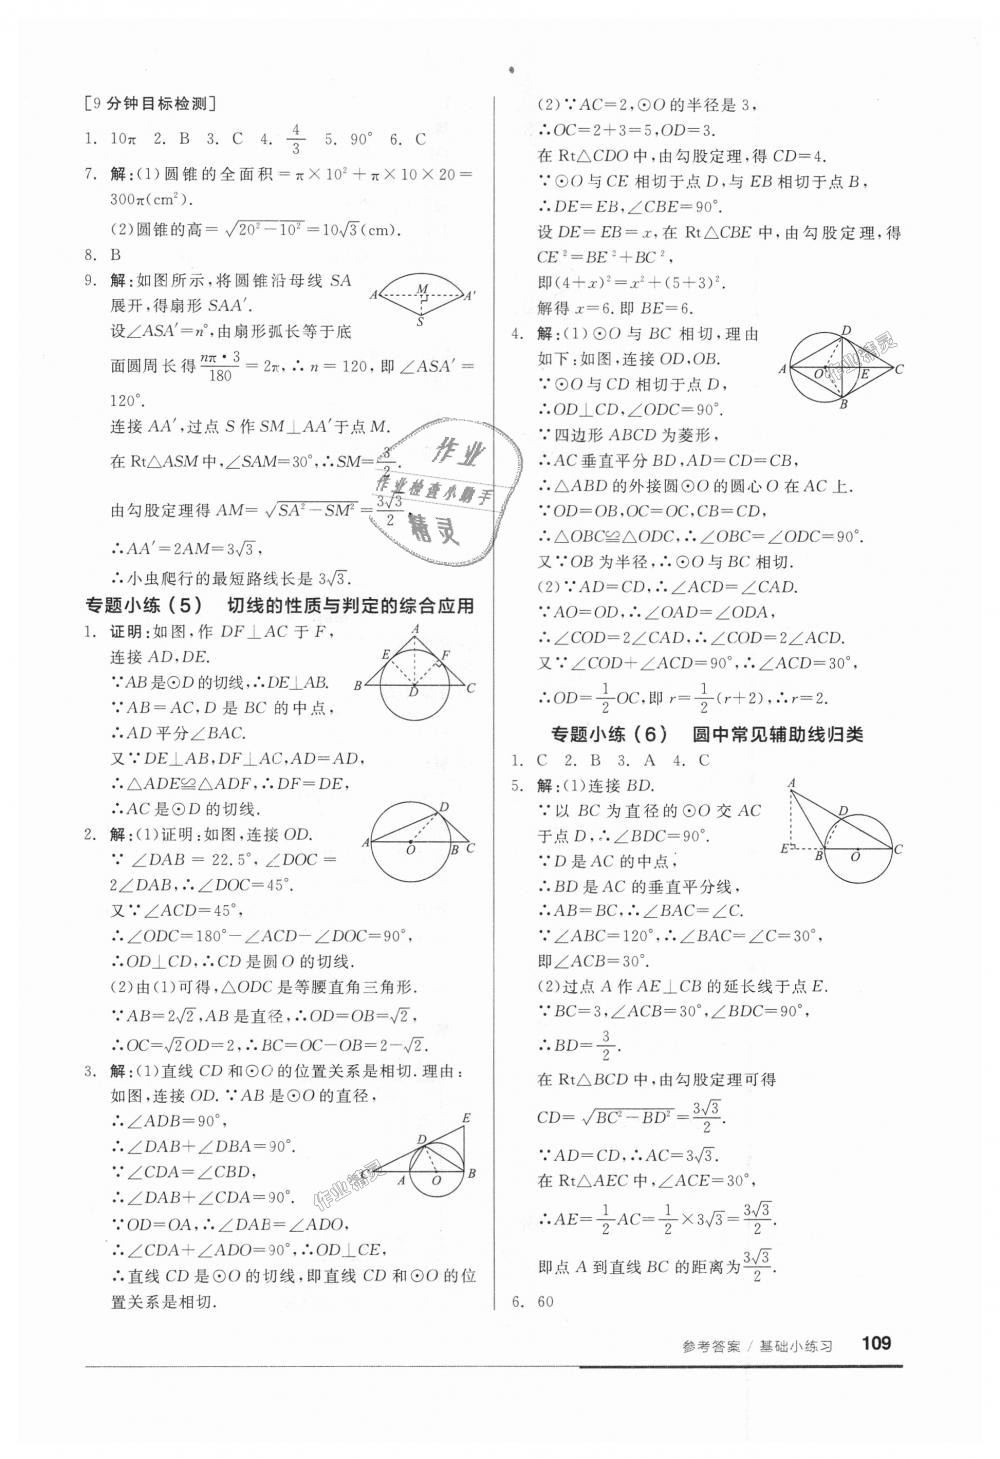 [9分钟目标检测]
1. 10π 2. B 3. C 4. 4/3 5. 90° 6. C
7. 解:(1)圆锥的全面积=π×10²+π×10×20=
300π(cm²).
(2)圆锥的高=√(20²-10²)=10√3(cm).
8. B
9. 解:如图所示,将圆锥沿母线 SA
展开,得扇形 SAA′.
设∠ASA′=n°,由扇形弧长等于底
面圆周长得 nπ·3/180=2π,∴n=120,即∠ASA′=
120°.
连接 AA′,过点 S 作 SM⊥AA′于点 M.
在 Rt△ASM 中,∠SAM=30°,∴SM=3/2.
由勾股定理得 AM=√(SA²-SM²)=3√3/2,
∴AA′=2AM=3√3,
∴小虫爬行的最短路线长是 3√3.
A M A′ S
专题小练(5) 切线的性质与判定的综合应用
1. 证明:如图,作 DF⊥AC 于 F,
连接 AD,DE.
∵AB 是⊙D 的切线,∴DE⊥AB.
∵AB=AC,D 是 BC 的中点,
∴AD 平分∠BAC.
又∵DE⊥AB,DF⊥AC,AD=AD,
∴△ADE≌△ADF,∴DF=DE,
∴AC 是⊙D 的切线.
A E F B D C
2. 解:(1)证明:如图,连接 OD.
∵∠DAB=22.5°,∠DOC=
2∠DAB,∴∠DOC=45°.
又∵∠ACD=45°,
∴∠ODC=180°-∠ACD-∠DOC=90°,
∴OD⊥CD,∴CD 是圆 O 的切线.
(2)由(1)可得,△ODC 是等腰直角三角形.
∵AB=2√2,AB 是直径,∴OD=OB=√2,
∴OC=√2OD=2,∴BC=OC-OB=2-√2.
D A O B C
3. 解:(1)直线 CD 和⊙O 的位置关系是相切.理由:
如图,连接 OD.∵AB 是⊙O 的直径,
∴∠ADB=90°,
∴∠DAB+∠DBA=90°.
∵∠CDA=∠CBD,
∴∠DAB+∠CDA=90°.
∵OD=OA,∴∠DAB=∠ADO,
∴∠CDA+∠ADO=90°,∴OD⊥CE,
∴直线 CD 是⊙O 的切线,即直线 CD 和⊙O 的位
置关系是相切.
E D C A O B
(2)∵AC=2,⊙O 的半径是 3,
∴OC=2+3=5,OD=3.
在 Rt△CDO 中,由勾股定理,得 CD=4.
∵⊙O 与 CE 相切于点 D,与 EB 相切于点 B,
∴DE=EB,∠CBE=90°.
设 DE=EB=x,在 Rt△CBE 中,由勾股定理,得
CE²=BE²+BC²,
即(4+x)²=x²+(5+3)².
解得 x=6.即 BE=6.
4. 解:(1)⊙O 与 BC 相切,理由
如下:如图,连接 OD,OB.
∵⊙O 与 CD 相切于点 D,
∴OD⊥CD,∠ODC=90°.
∵四边形 ABCD 为菱形,
∴AC 垂直平分 BD,AD=CD=CB,
∴△ABD 的外接圆⊙O 的圆心 O 在 AC 上.
∵OD=OB,OC=OC,CB=CD,
∴△OBC≌△ODC,∴∠OBC=∠ODC=90°.
又∵OB 为半径,∴⊙O 与 BC 相切.
(2)∵AD=CD,∴∠ACD=∠CAD.
∵AO=OD,∴∠OAD=∠ODA,
∴∠COD=2∠CAD,∴∠COD=2∠ACD.
又∵∠COD+∠ACD=90°,∴∠ACD=30°,
∴OD=1/2 OC,即 r=1/2(r+2),∴r=2.
D A O E C B
专题小练(6) 圆中常见辅助线归类
1. C 2. B 3. A 4. C
5. 解:(1)连接 BD.
∵以 BC 为直径的⊙O 交 AC
于点 D,∴∠BDC=90°.
∵D 是 AC 的中点,
∴BD 是 AC 的垂直平分线,
∴AB=BC,∴∠BAC=∠C.
∵∠ABC=120°,∴∠BAC=∠C=30°,
即∠ACB=30°.
(2)过点 A 作 AE⊥CB 的延长线于点 E.
∵BC=3,∠ACB=30°,∠BDC=90°,
∴BD=3/2.
在 Rt△BCD 中,由勾股定理可得
CD=√(BC²-BD²)=3√3/2.
∵AD=CD,∴AC=3√3.
在 Rt△AEC 中,∠ACE=30°,
∴AE=1/2 AC=1/2×3√3=3√3/2,
即点 A 到直线 BC 的距离为 3√3/2.
A D E B O C
6. 60
作业
作业检查小助手
精灵
作业精灵
作业精灵
参考答案 / 基础小练习 109